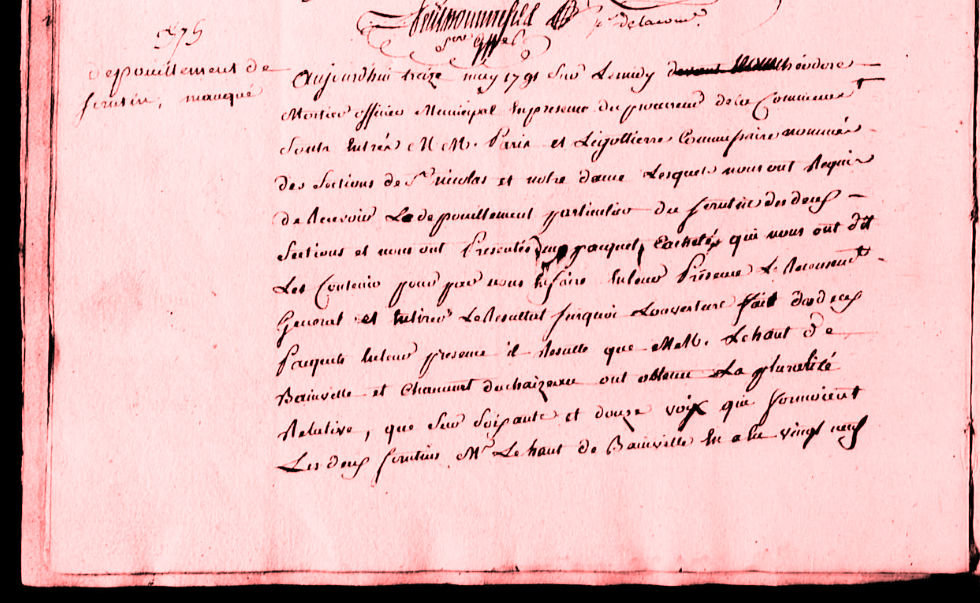 375
depouillement de
scrutin, manqué
Aujourdhui treize may 1791 Sur Lemidy devant Théodore
Mortier officier Municipal En presence du procureur dela Commune
Sonts Entrés M M. Paris et Commissaire nommés
des Sections de St nicolas et notre dame Lesquels nous ont Requis
de Recevoir Le depouillement particulier du scrutin des deux
Sections et nous ont Presentés deux paquets Cachetés qui nous ont dit
Les Contenir pour par nous En faire Enleur Presence Le Recensemt
General et Entirer Le Resultat surquoi Louverture fait des deux
Paquets Enleur presence il Resulte que MM. Lehaut de
Bainville et Chanuart duchaizeau ont obtenu La pluralité
Relative, que Sur Soixante et douze voix qui formoient
Les deux scrutins Mr Le haut de Bainville En a Eu vingt neuf